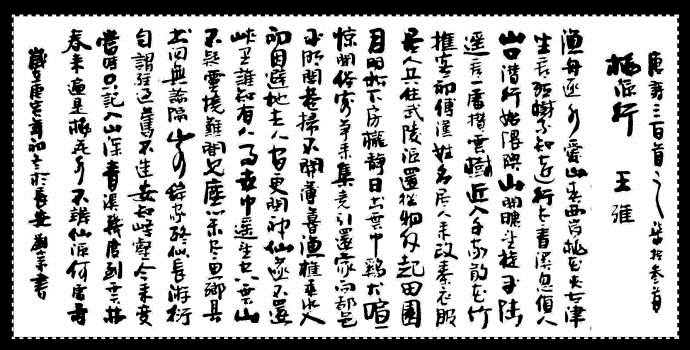 唐诗三百首之柒拾叁首
桃源行 王維
漁舟逐水愛山春兩岸桃花夾古津
坐看紅樹不知遠行盡青溪忽值人
山口潛行始隈隩山開曠望旋平陸
遥看一處攢雲樹近入千家散花竹
樵客初傳漢姓名居人未改秦衣服
居人共住武陵源還從物外起田園
月明松下房櫳靜日出雲中鷄犬喧
驚聞俗客爭来集竟引還家問都邑
平明閭巷掃花開薄暮漁樵乘水入
初因避地去人間更聞神仙遂不還
峽里誰知有人事世中遥望空雲山
不疑靈境難聞見塵心未盡思鄉縣
出洞無論隔山水辭家終擬長游衍
自謂經過舊不迷安知峰壑今来變
當時只記入山深青溪幾度到雲林
春来遍是桃花水不辨仙源何處尋
歲在庚寅年初冬於長安 書